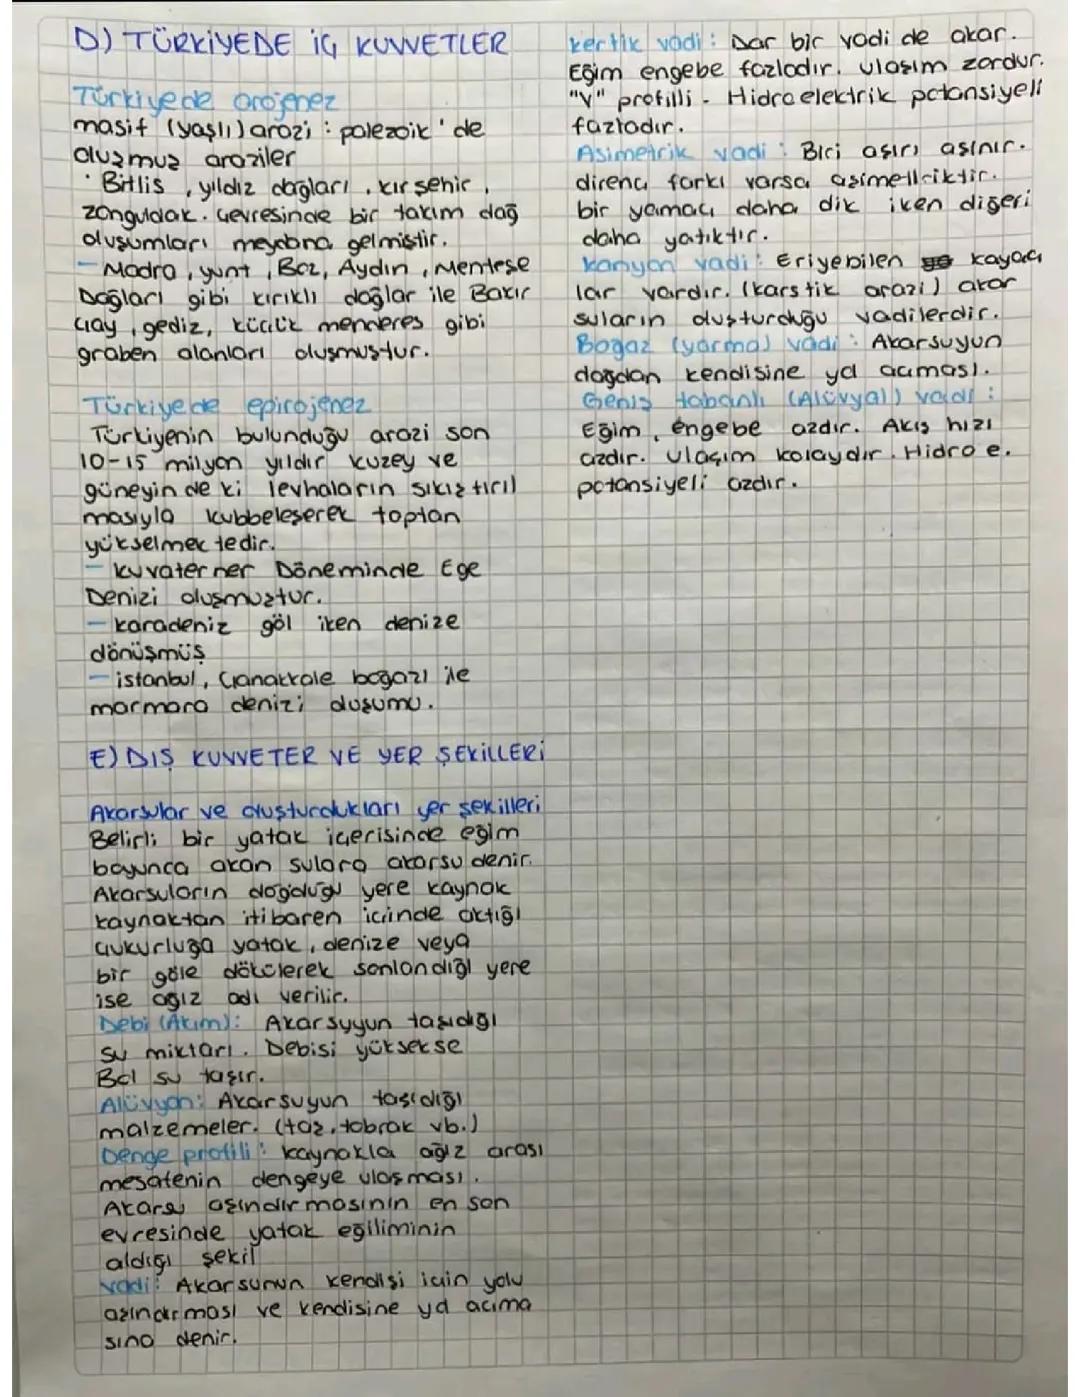 D) TÜRKİYEDE İÇ KUVVETLER
Türkiyede orojenez
masif (yaşlı) arazi : palezoik'de
oluşmuş araziler
• Bitlis, yıldız dağları, kırşehir,
zonguldak. çevresinde bir takım dağ
oluşumları meydana gelmiştir.
- Madra, yunt, Boz, Aydın, Menteşe
Dağları gibi kırıklı dağlar ile Bakır
çay, gediz, küçük menderes gibi
graben alanları oluşmuştur.
Türkiyede epirojenez
Türkiyenin bulunduğu arazi son
10-15 milyon yıldır kuzey ve
güneyin de ki levhaların sıkıştırıl
masıyla kubbeleşerek toptan
yükselmektedir.
- kuvaterner Döneminde Ege
Denizi oluşmuştur.
- karadeniz göl iken denize
dönüşmüş
- istanbul, Çanakkale boğazı ile
marmara denizi oluşumu.
E) DIŞ KUVVETER VE YER ŞEKİLLERİ
Akarsular ve oluşturdukları yer şekilleri
Belirli bir yatak içerisinde eğim
boyunca akan sulara akarsu denir.
Akarsuların doğduğu yere kaynak
kaynaktan itibaren içinde aktığı
çukurluğa yatak, denize veya
bir göle dökülerek sonlandığı yere
ise ağız adı verilir.
Debi (Akım): Akarsuyun taşıdığı
su miktarı. Debisi yüksekse
Bol su taşır.
Alüvyon: Akarsuyun taşıdığı
malzemeler. (taş, tobrak vb.)
Denge profili : kaynakla ağız arası
mesafenin dengeye ulaşması.
Akarsu aşındırmasının en son
evresinde yatak eğiliminin
aldığı şekil
Vadi: Akarsunun kendisi için yolu
aşındırması ve kendisine yol açma
sına denir.
kertik vadi : Dar bir vadi de akar.
Eğim engebe fazladır. ulaşım zordur.
"V" profilli. Hidroelektrik potansiyeli
fazladır.
Asimetrik vadi : Biri aşırı aşınır.
direnç farkı varsa asimetriktir.
bir yamaç daha dik iken diğeri
daha yatıktır.
kanyon vadi : Eriyebilen kayaç
lar vardır. (karstik arazi) akar
suların oluşturduğu vadilerdir.
Boğaz (yarma) vadi : Akarsuyun
dağdan kendisine yol açması.
Geniş tabanlı (Alüvyal) vadi :
Eğim, engebe azdır. Akış hızı
azdır. ulaşım kolaydır. Hidro e.
potansiyeli azdır.